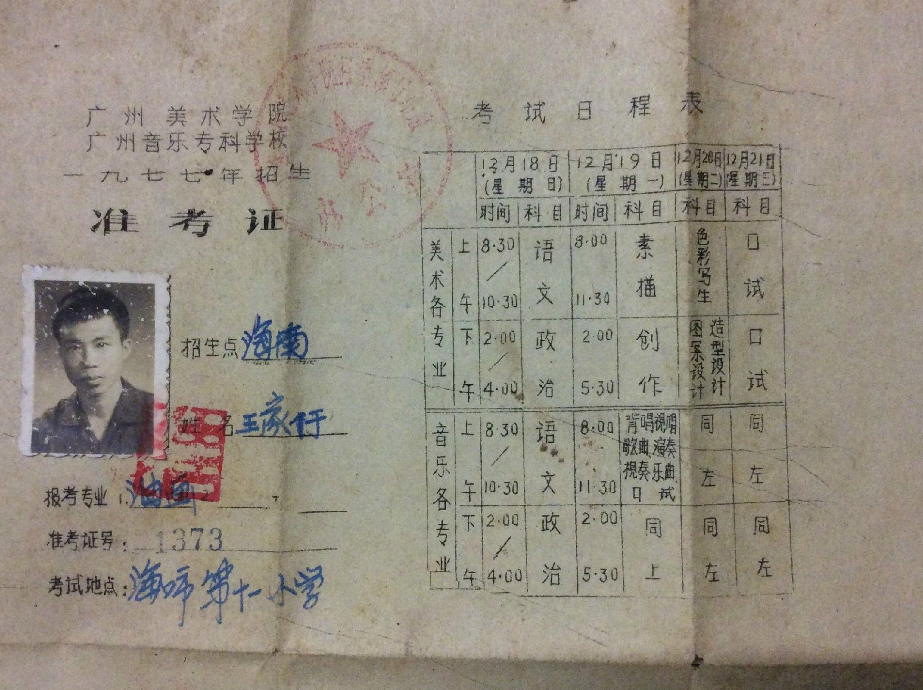 广州美术学院
广州音乐专科学校
一九七七年招生
准考证
招生点 海南
姓名 王家行
报考专业: 油画
准考证号: 1373
考试地点: 海师第十一小学
考试日程表
12月18日(星期日) 12月19日(星期一) 12月20日(星期二) 12月21日(星期三)
时间 科目 时间 科目 科目 科目
美术各专业 上午 8.30/10.30 语文 8.00 11.30 素描 色彩写生 口试
下午 2.00 4.00 政治 2.00 5.30 创作 图案设计 造型设计 口试
音乐各专业 上午 8.30/10.30 语文 8.00 11.30 背唱视唱歌曲、演奏视奏乐曲、口试 同左 同左
下午 2.00/4.00 政治 2.00 5.30 同上 同左 同左